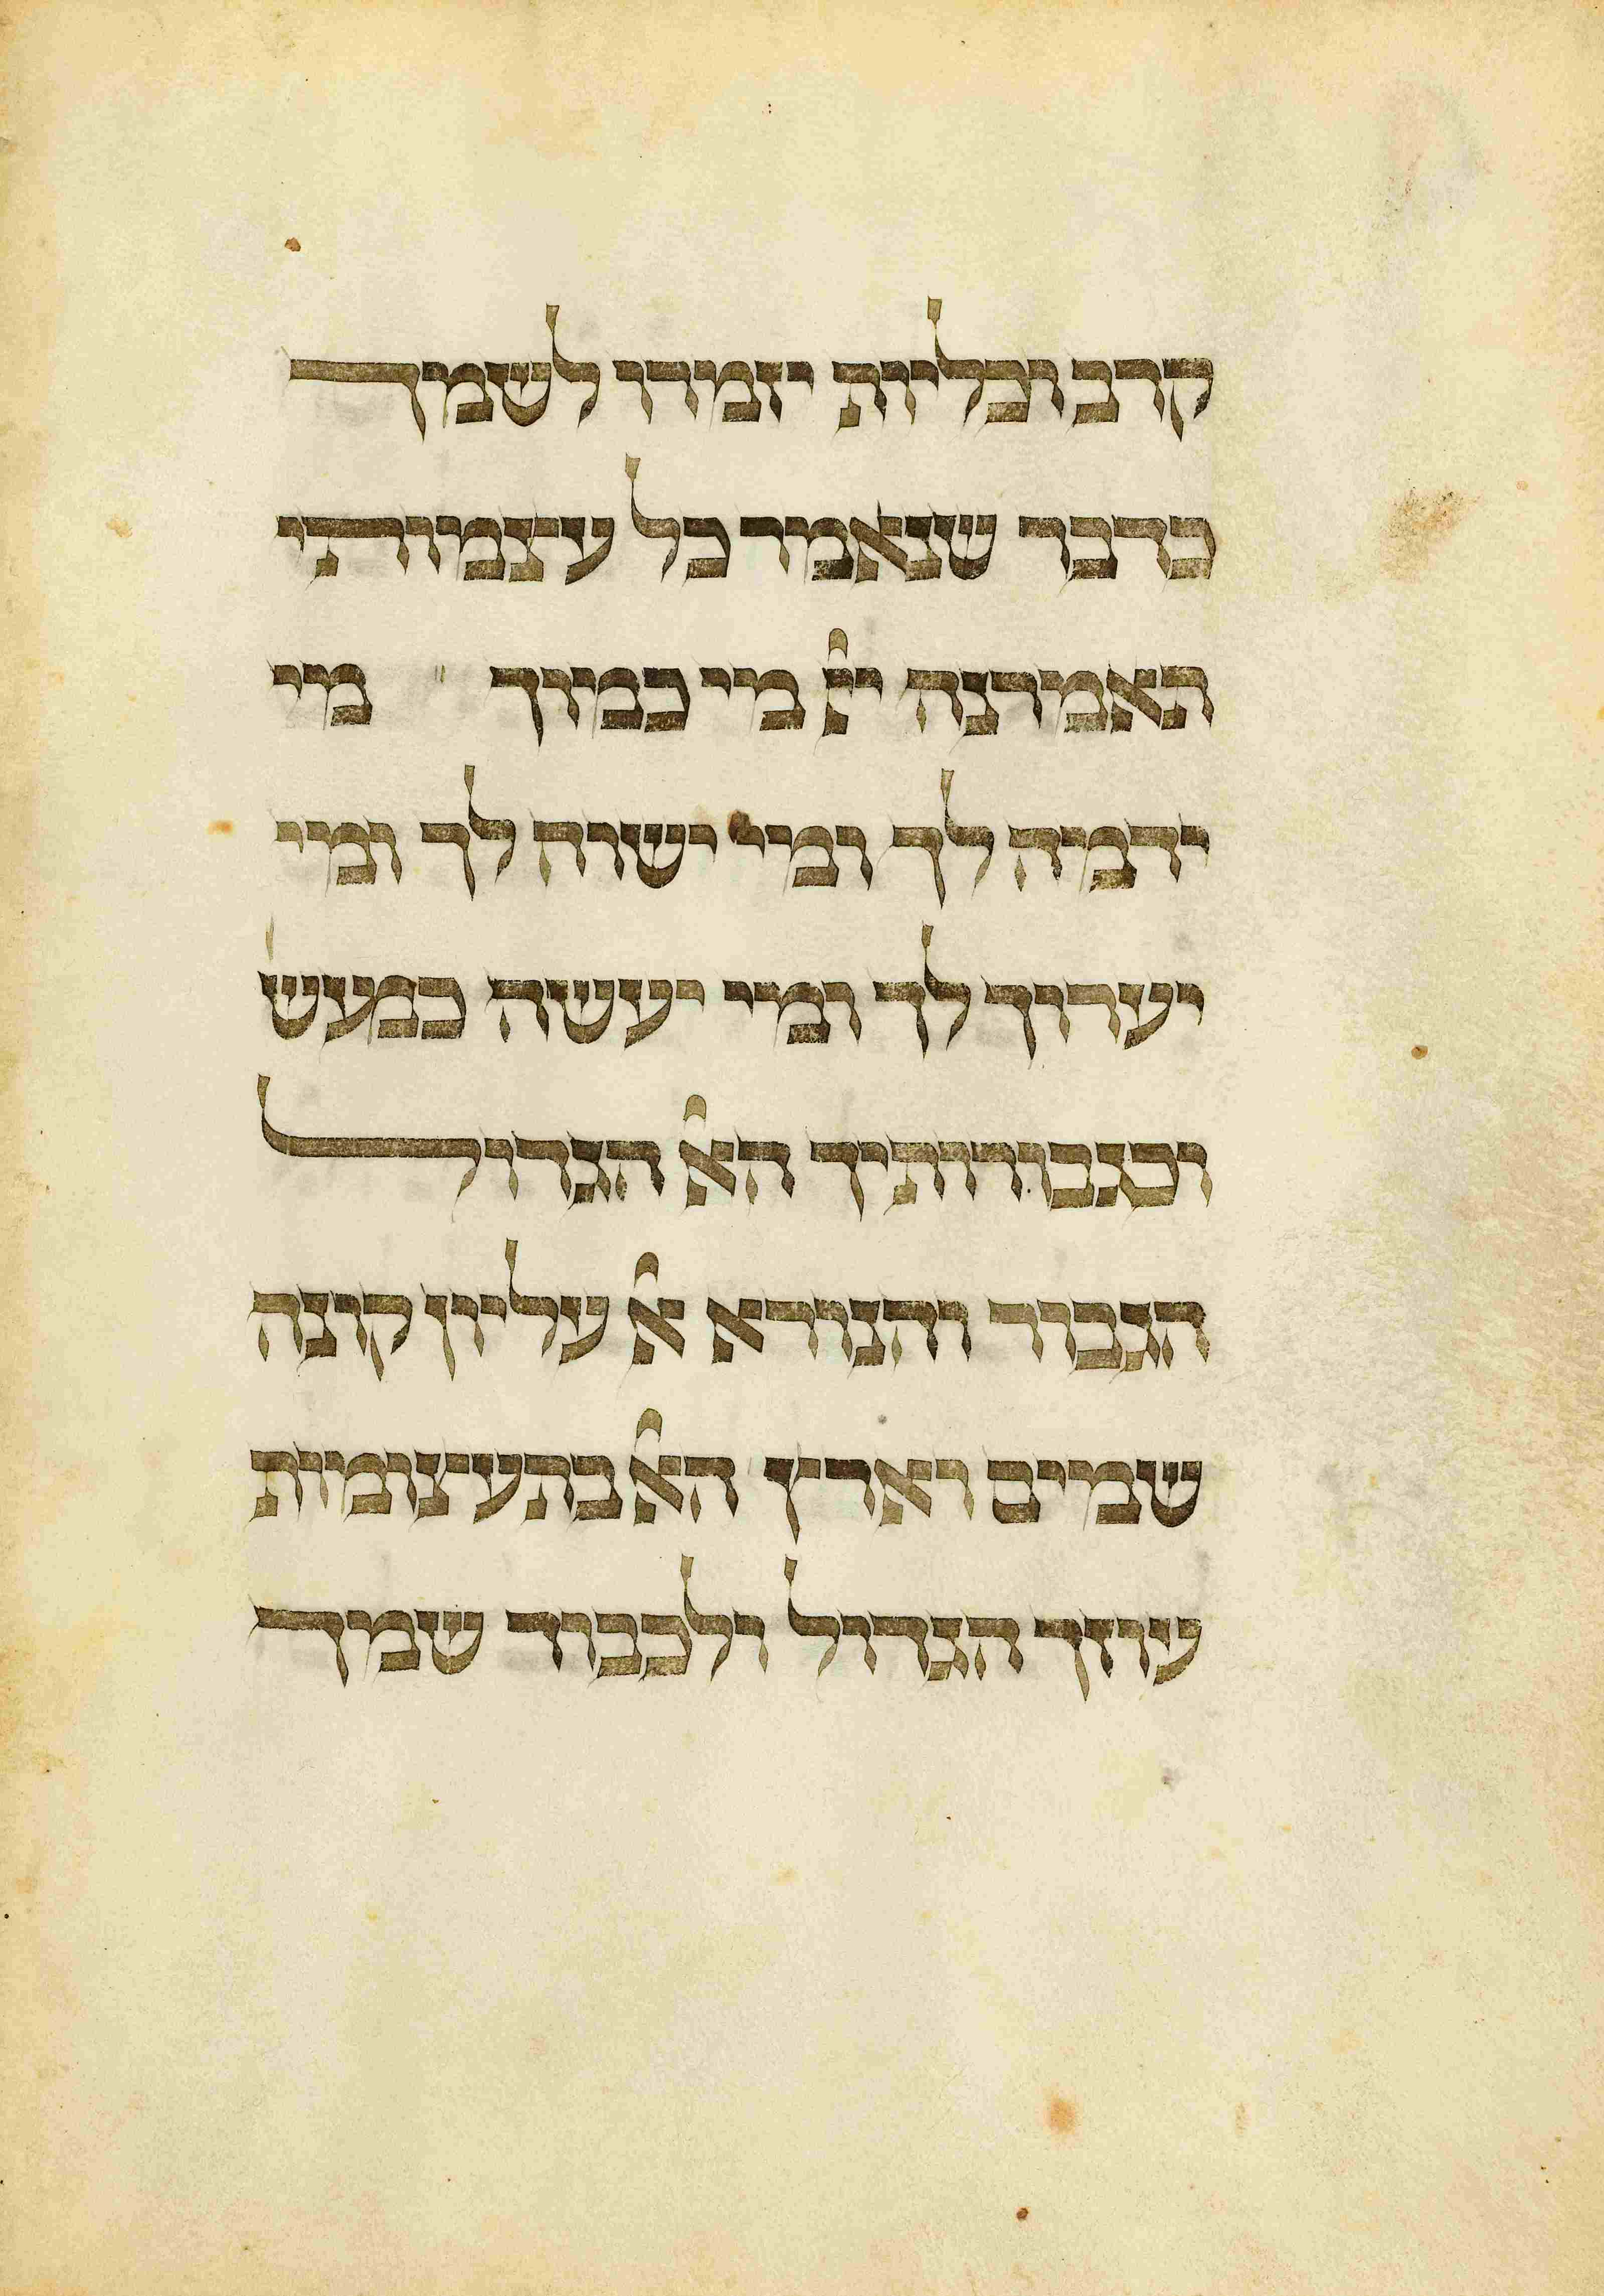 קרב וכליות יזמרו לשמך
כדבר שנאמר כל עצמותי
תאמרנה יי֮ מי כמוך מי
ידמה לך ומי ישוה לך ומי
יערוך לך ומי יעשה כמעש
וכגבורותיך הא הגדול
הגבור והנורא א עליון קונה
שמים וארץ הא בתעצומות
עוזך הגדול ולכבוד שמך